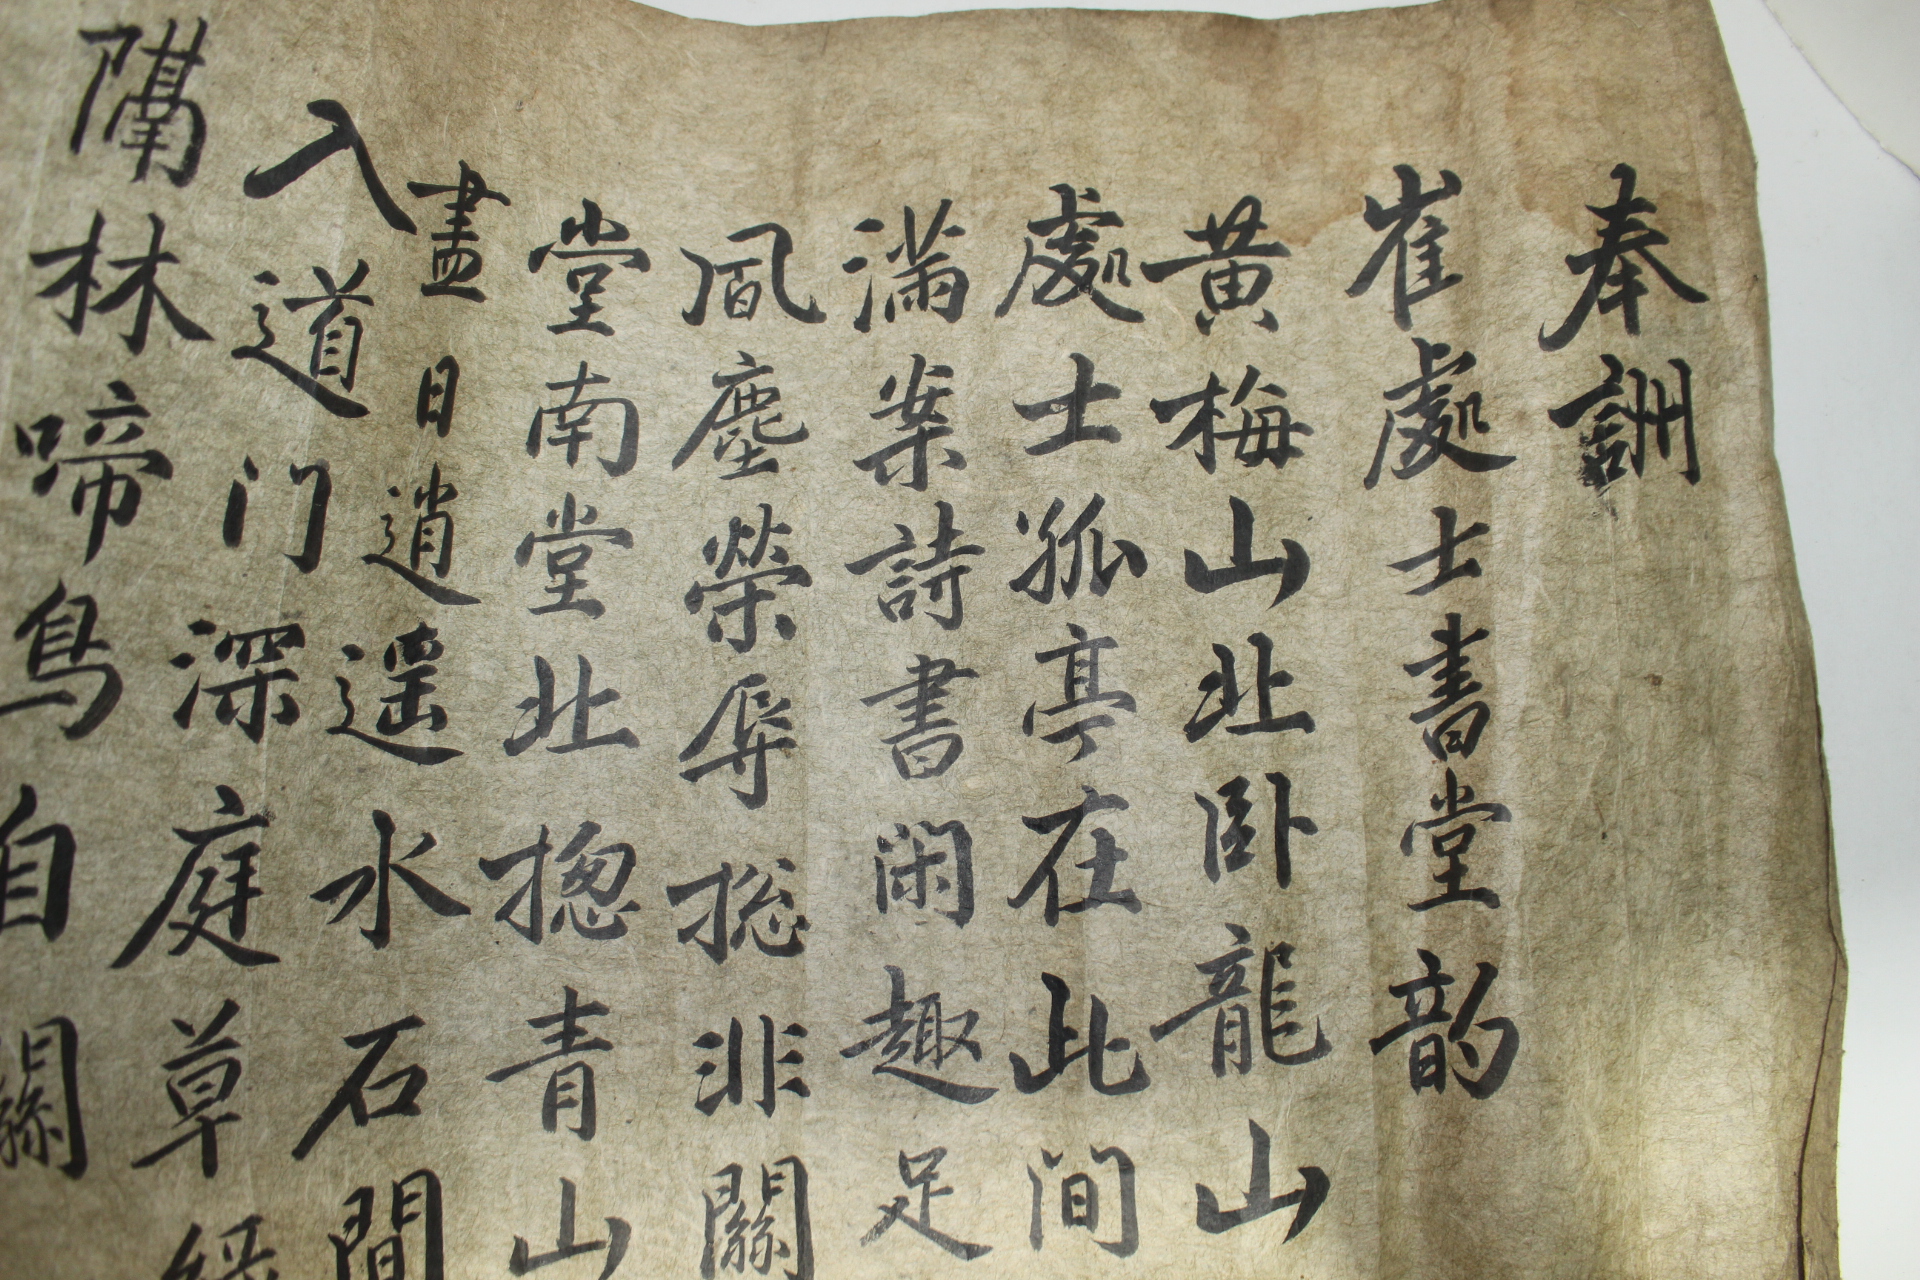 奉詶
崔處士書堂韵
黃梅山北卧龍山
處士孤亭在此間
滿案詩書閑趣足
風塵榮辱揔非關
堂南堂北揔青山
盡日逍遥水石間
入道门深庭草
隔林啼鳥自關